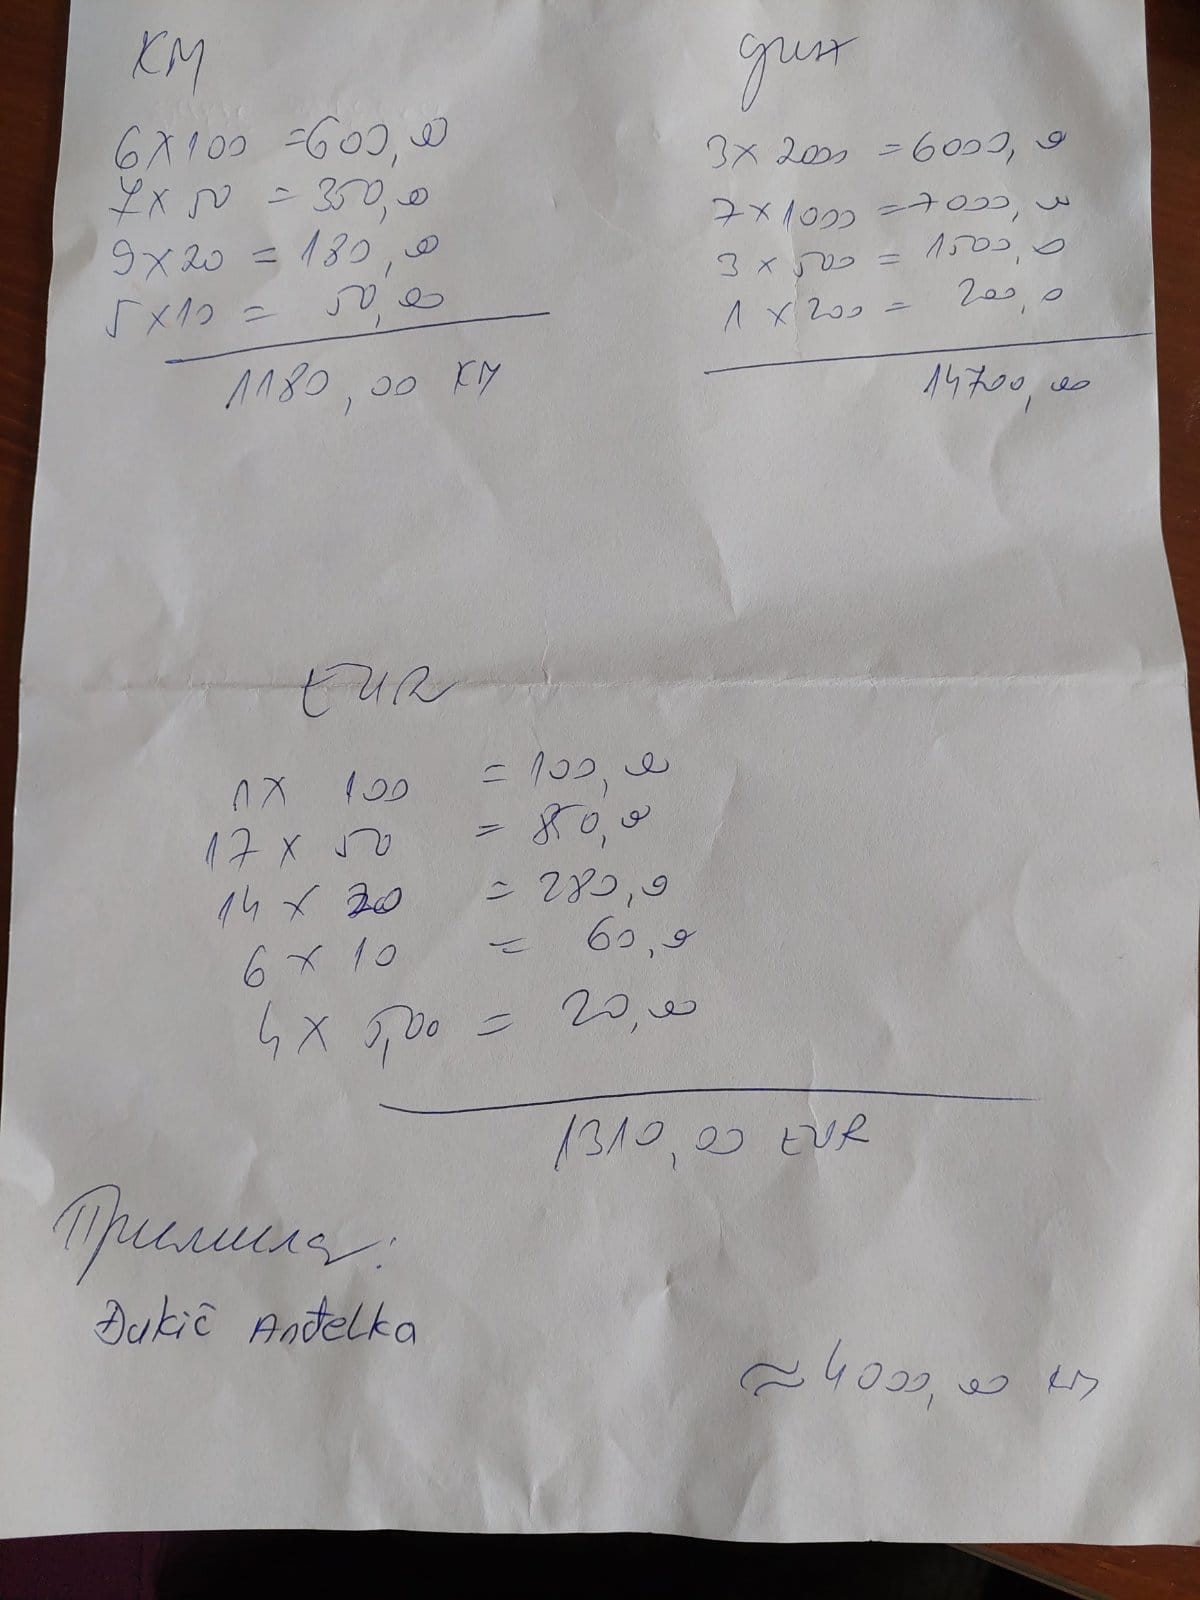 KM
6 x 100 = 600,00
7 x 50 = 350,00
9 x 20 = 180,00
5 x 10 = 50,00
1180,00 KM
дин
3 x 2000 = 6000,00
7 x 1000 = 7000,00
3 x 500 = 1500,00
1 x 200 = 200,0
14700,00
EUR
1 x 100 = 100,00
17 x 50 = 850,00
14 x 20 = 280,00
6 x 10 = 60,00
4 x 5,00 = 20,00
1310,00 EUR
Примила:
Đukić Anđelka
≈ 4000,00 KM